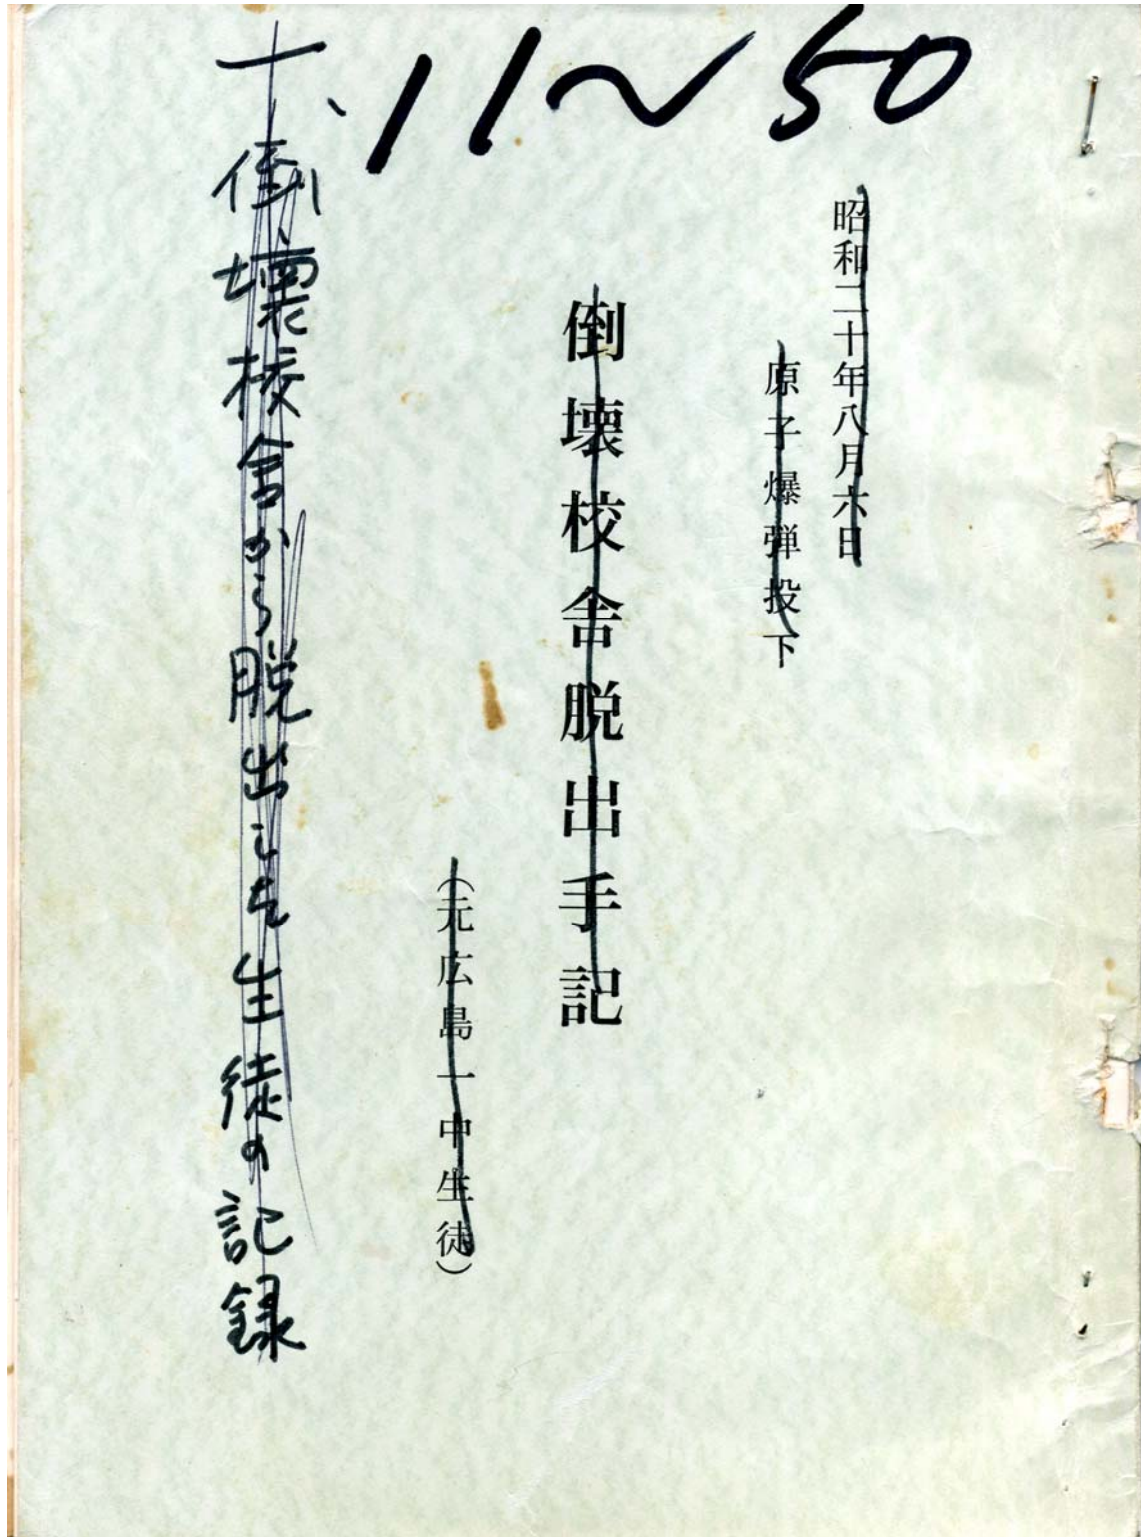 11〜50
昭和二十年八月六日
原子爆弾投下
倒壊校舎脱出手記
(元広島一中生徒)
一、倒壊校舎から脱出した生徒の記録